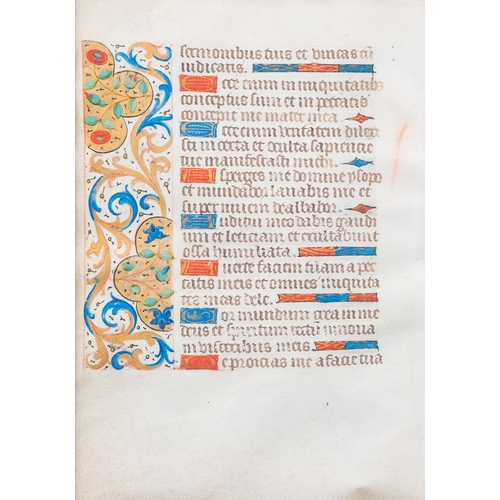 sermonibus tuis et vincas cū
iudicaris.
Ecce enim in iniquitatibus
conceptus sum et in peccatis
concepit me mater mea.
Ecce enim veritatem dilexi
sti incerta et occulta sapiencie
tue manifestasti michi.
Asperges me domine ysopo
et mundabor lavabis me et
super nivem dealbabor.
Auditui meo dabis gaudiu
um et leticiam et exultabunt
ossa humiliata.
Averte faciem tuam a pec
catis meis et omnes iniquita
tes meas dele.
Cor mundum crea in me
deus et spiritum rectū innova
in visceribus meis.
Ne proicias me a facie tua